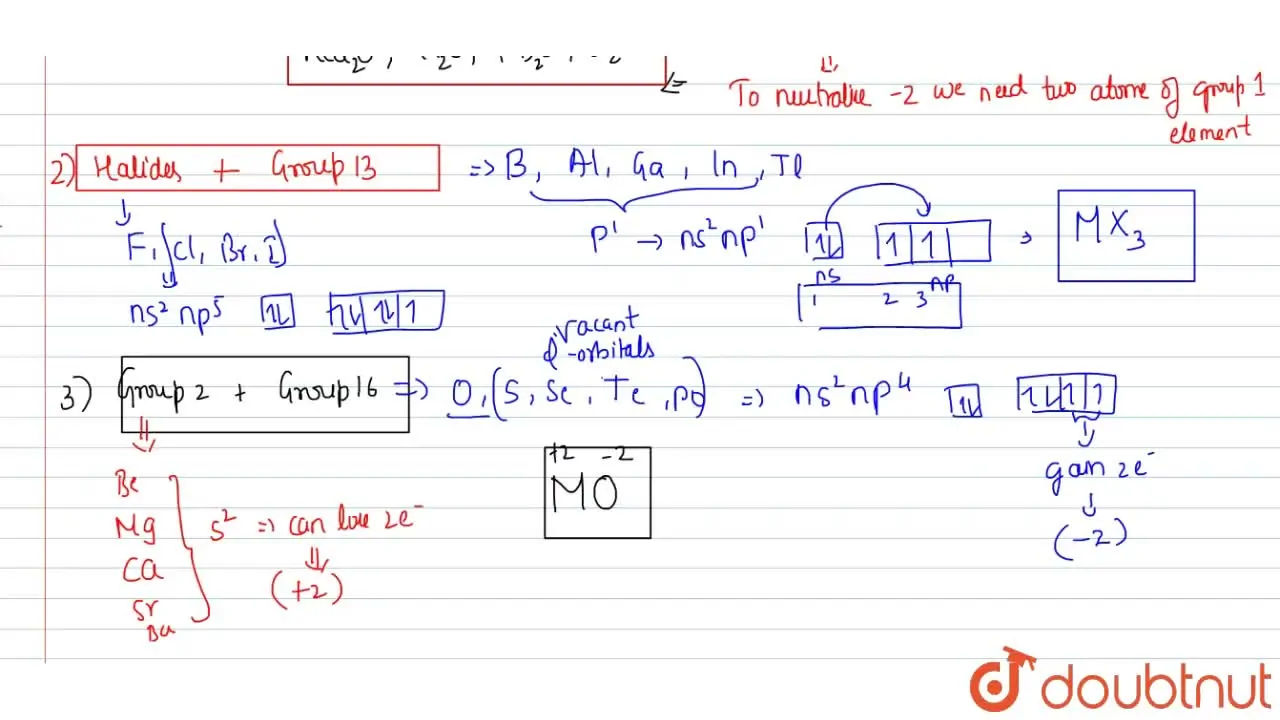 To neutralise -2 we need two atoms of group 1
element
2) Halides + Group 13 => B, Al, Ga, In, Tl
F, (Cl, Br, I)
p¹ → ns²np¹ 1↓ 1 1 → MX₃
ns np
1 2 3
ns² np⁵ 1↓ 1↓ 1↓ 1
vacant
d-orbitals
3) Group 2 + Group 16 => O, (S, Se, Te, Po) => ns²np⁴ 1↓ 1↓ 1 1
+2 -2
MO
gain 2e⁻
(-2)
Be
Mg
Ca
Sr
Ba
s² => can lose 2e⁻
(+2)
doubtnut